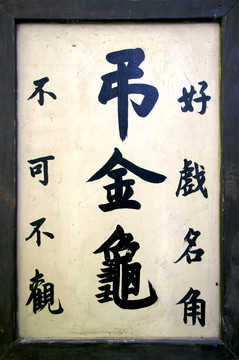 好戲名角
弔金龜
不可不觀